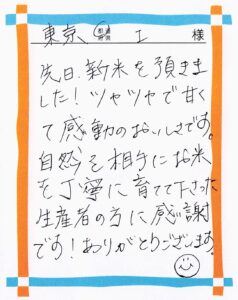 東京 都道府県 I 様
先日、新米を頂きま
した!ツヤツヤで甘く
て感動のおいしさです。
自然を相手にお米
を丁寧に育てて下さった
生産者の方に感謝
です!ありがとうございます。